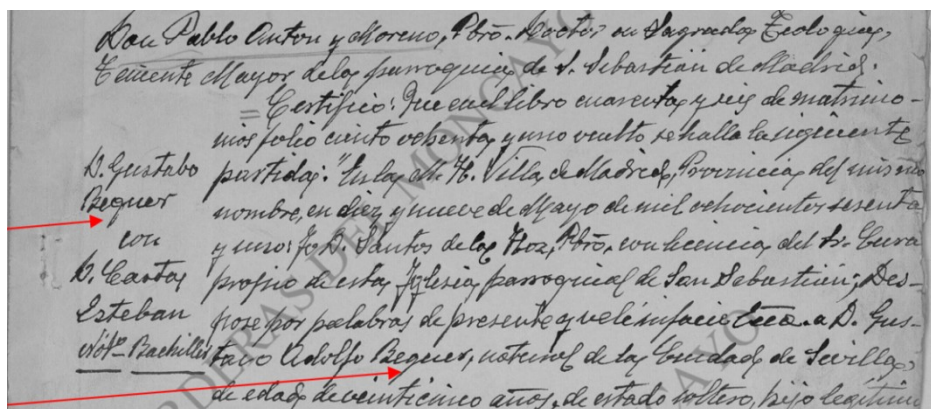 Don Pablo Anton y Moreno, Pbro. Doctor en Sagrada Teologia,
Teniente Mayor de la parroquia de S. Sebastián de Madrid.
= Certifico: Que en el libro cuarenta y seis de matrimo-
nios folio ciento ochenta y uno vuelto se halla la siguiente
partida: "En la M. H. Villa de Madrid, Provincia del mismo
nombre, en diez y nueve de Mayo de mil ochocientos sesenta
y uno: Yo D. Santos de la Hoz, Pbro. con licencia del Sr. Cura
propio de esta Iglesia parroquial de San Sebastián; Des-
posé por palabras de presente y velé infacie a D. Gus-
tavo Adolfo Bequer, natural de la Ciudad de Sevilla,
de edad de veinticinco años, de estado soltero, hijo legítimo
D. Gustavo
Bequer
con
D. Casta
Esteban
Bachiller
MONCAYO